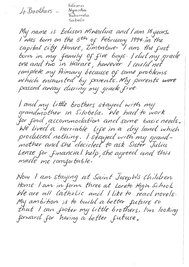 4 Brothers -
My name is Edison Miracles and I am 17years
I was born on the 5th of February 1994 in the
capital city Harare, Zimbabwe. I am the first
born in my family of five boys. I did my grade
one and two in Harare, however I could not
complete my Primary because of some problems
which amounted by parents. My parents were
passed away during my grade five.
I and my little brothers stayed with my
grandmother in Tsholotsho. We had to work
for food, accommodation and some basic needs.
We lived a horrible life in a dry land which
produced nothing. I stayed with my grand-
mother and she decided to ask Sister Julia
for financial help, she agreed and this
made me comfortable.
Now I am staying at Saint Joseph's children
Home. I am in form three at Loreto High School.
We are all Catholic and I like to read novels.
My ambition is to build a better future so
that I can foster my little brothers. I'm looking
forward for having a better future.